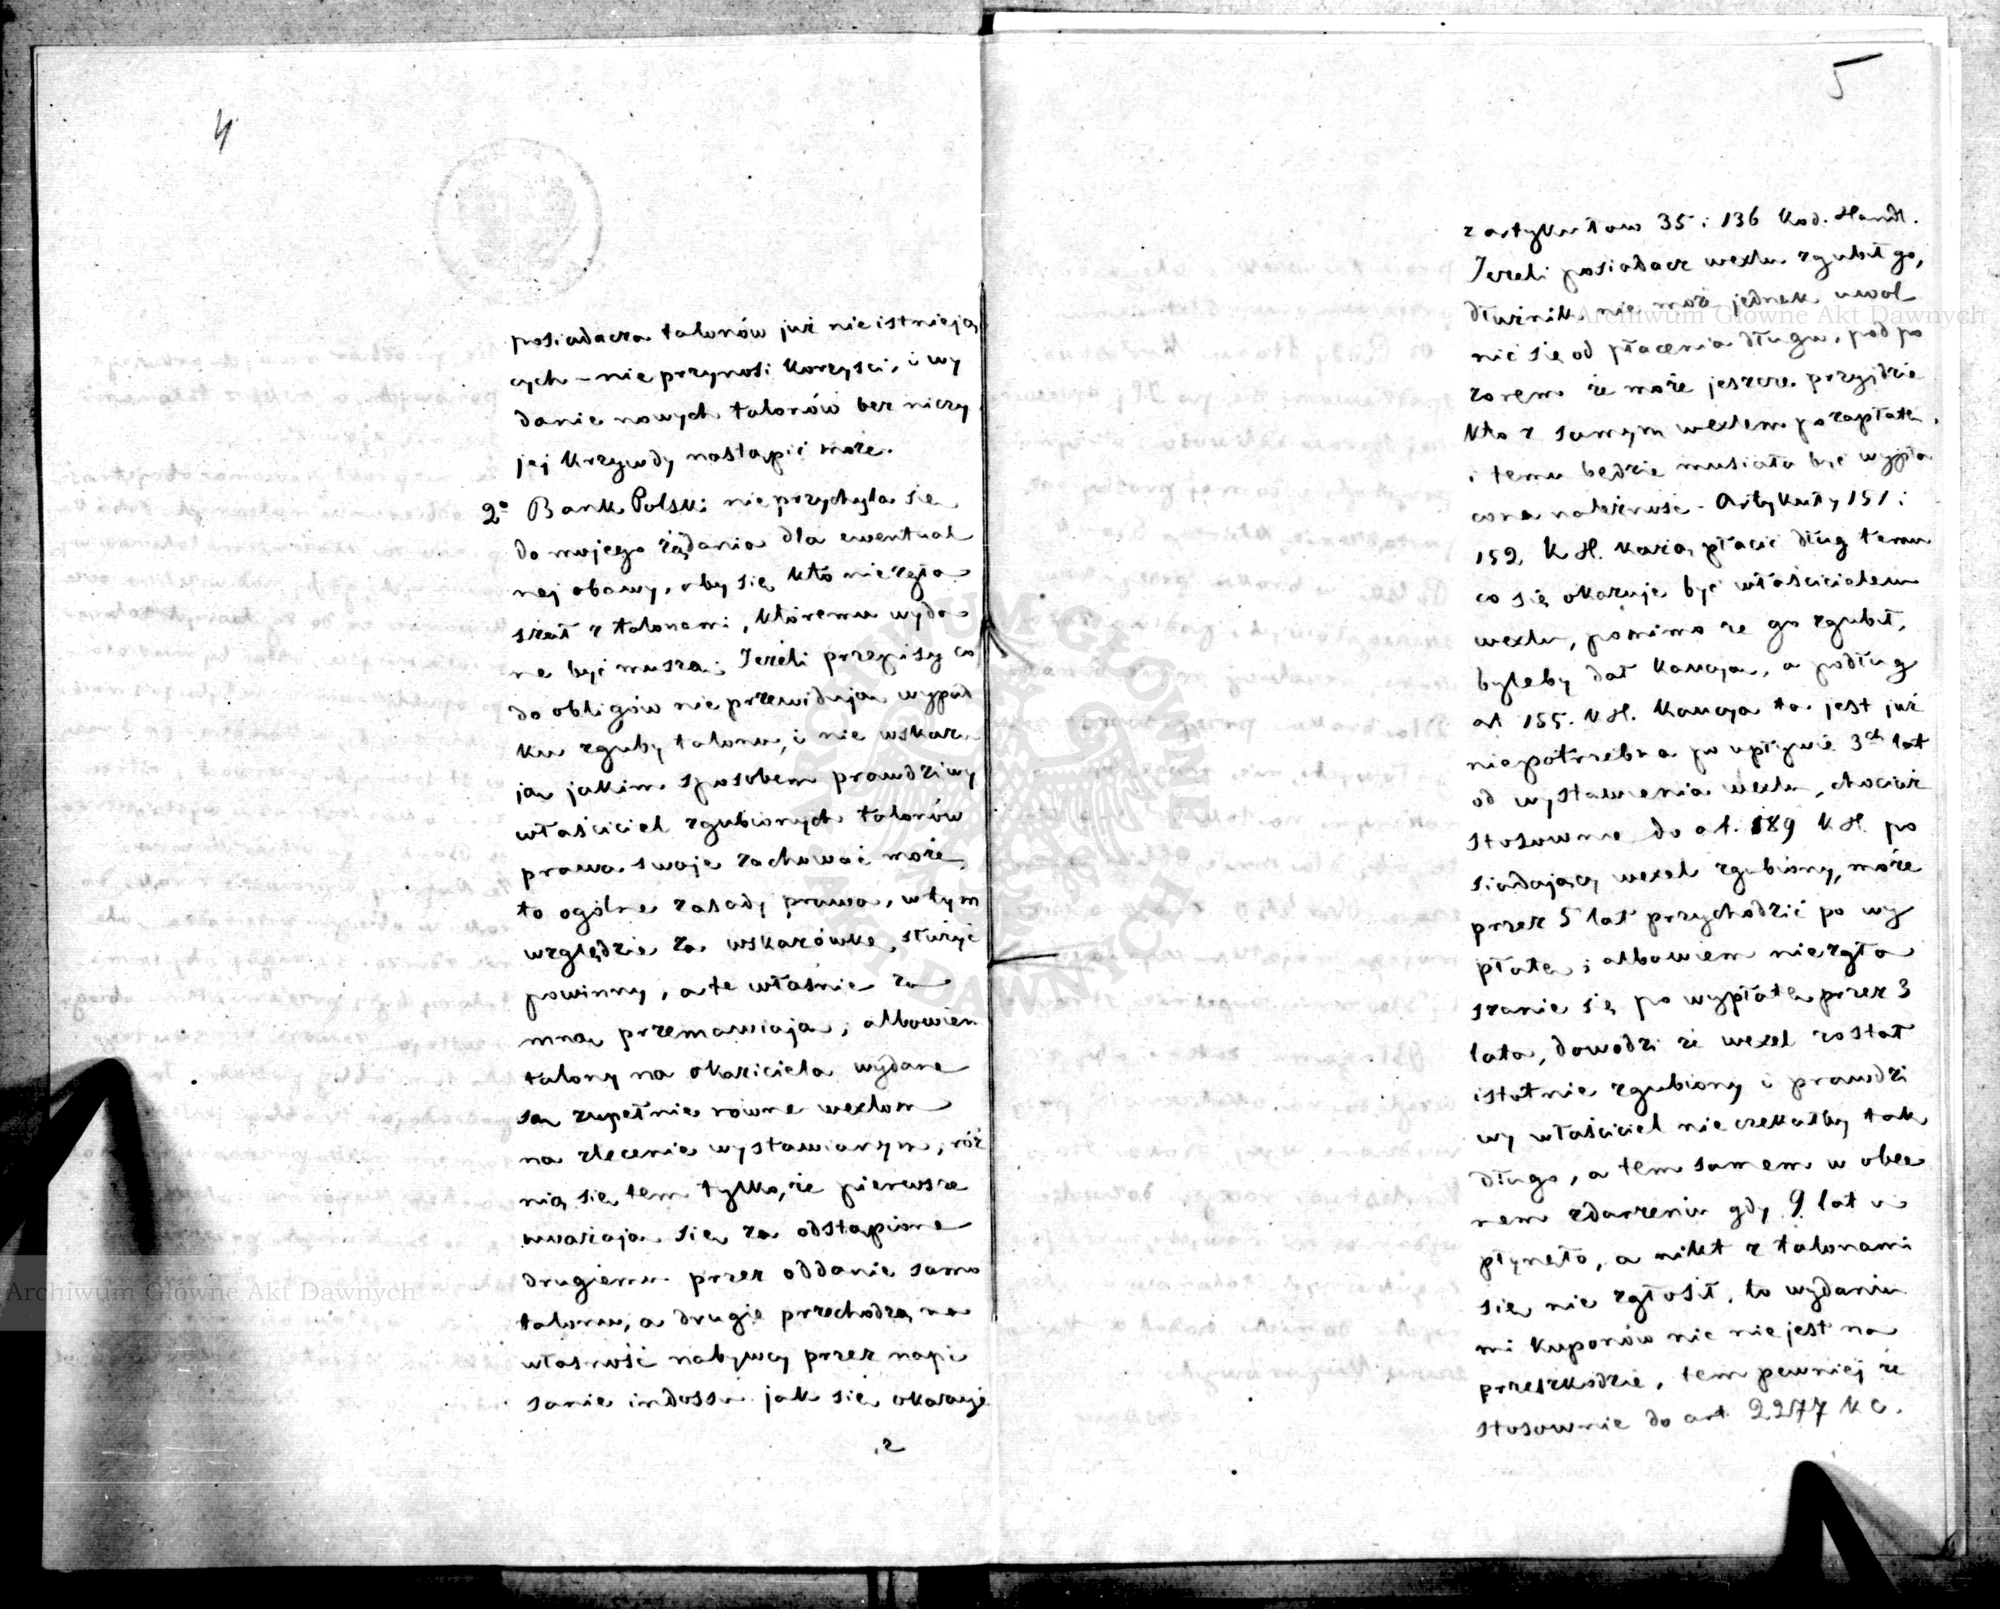 4
posiadacza talonów już nie istnieją
cych – nie przynosi korzyści, i wy
danie nowych talonów bez niczy
jej krzywdy nastąpić może.
2o Bank Polski nie przychyla się
do mojego żądania dla ewentual
nej obawy, aby się kto nie zgło
sił z talonami, któremu wyda
ne być muszą; Jeżeli przepisy co
do obligów nie przewidują wypad
ku zguby talonu, i nie wskazu
ją jakim sposobem prawdziwy
właściciel zgubionych talonów
prawa swoje zachować może,
to ogólne zasady prawa, w tym
względzie za wskazówkę służyć
powinny, a te właśnie za
mną przemawiają; albowiem
talony na okaziciela wydane
są zupełnie równe wexlom
na zlecenie wystawianym, róż
nią się tem tylko, że pierwsze
uważają się za odstąpione
drugiemu przez oddanie samo
talonu, a drugie przechodzą na
własność nabywcy przez napi
sanie indossu jak się okazuje
z
5
z artykułow 35 i 136 Kod. Handl.
Jeżeli posiadacz wexlu zgubił go,
dłużnik nie może jednak uwol
nić się od płacenia długu, pod po
zorem że może jeszcze przyjdzie
kto z samym wexlem po zapłatę,
i temu będzie musiała być wypła
cona należność – Artykuły 151 i
152 K H. każą płacić dług temu
co się okazuje być właścicielem
wexlu, pomimo że go zgubił,
byleby dał kaucyą, a podług
at 155. K H. kaucya ta jest już
niepotrzebna po upływie 3ch lat
od wystawienia wexlu, chociaż
stosownie do at. 189 K H. po
siadający wexel zgubiony, może
przez 5 lat przychodzić po wy
płatę; albowiem niezgła
szanie się po wypłatę przez 3
lata, dowodzi że wexel został
istotnie zgubiony i prawdzi
wy właściciel nie czekałby tak
długo, a tem samem w obec
nem zdarzeniu gdy 9 lat u
płynęło, a nikt z talonami
się nie zgłosił, to wydaniu
mi kuponów nic nie jest na
przeszkodzie, tem pewniej że
stosownie do art 2277 K C.
ARCHIWUM GŁÓWNE AKT DAWNYCH
Archiwum Główne Akt Dawnych
Archiwum Główne Akt Dawnych